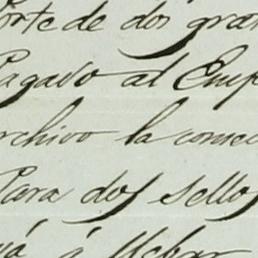 orte de dos gran
Pagado al Emp
rchivo la comed
Para dos sellos